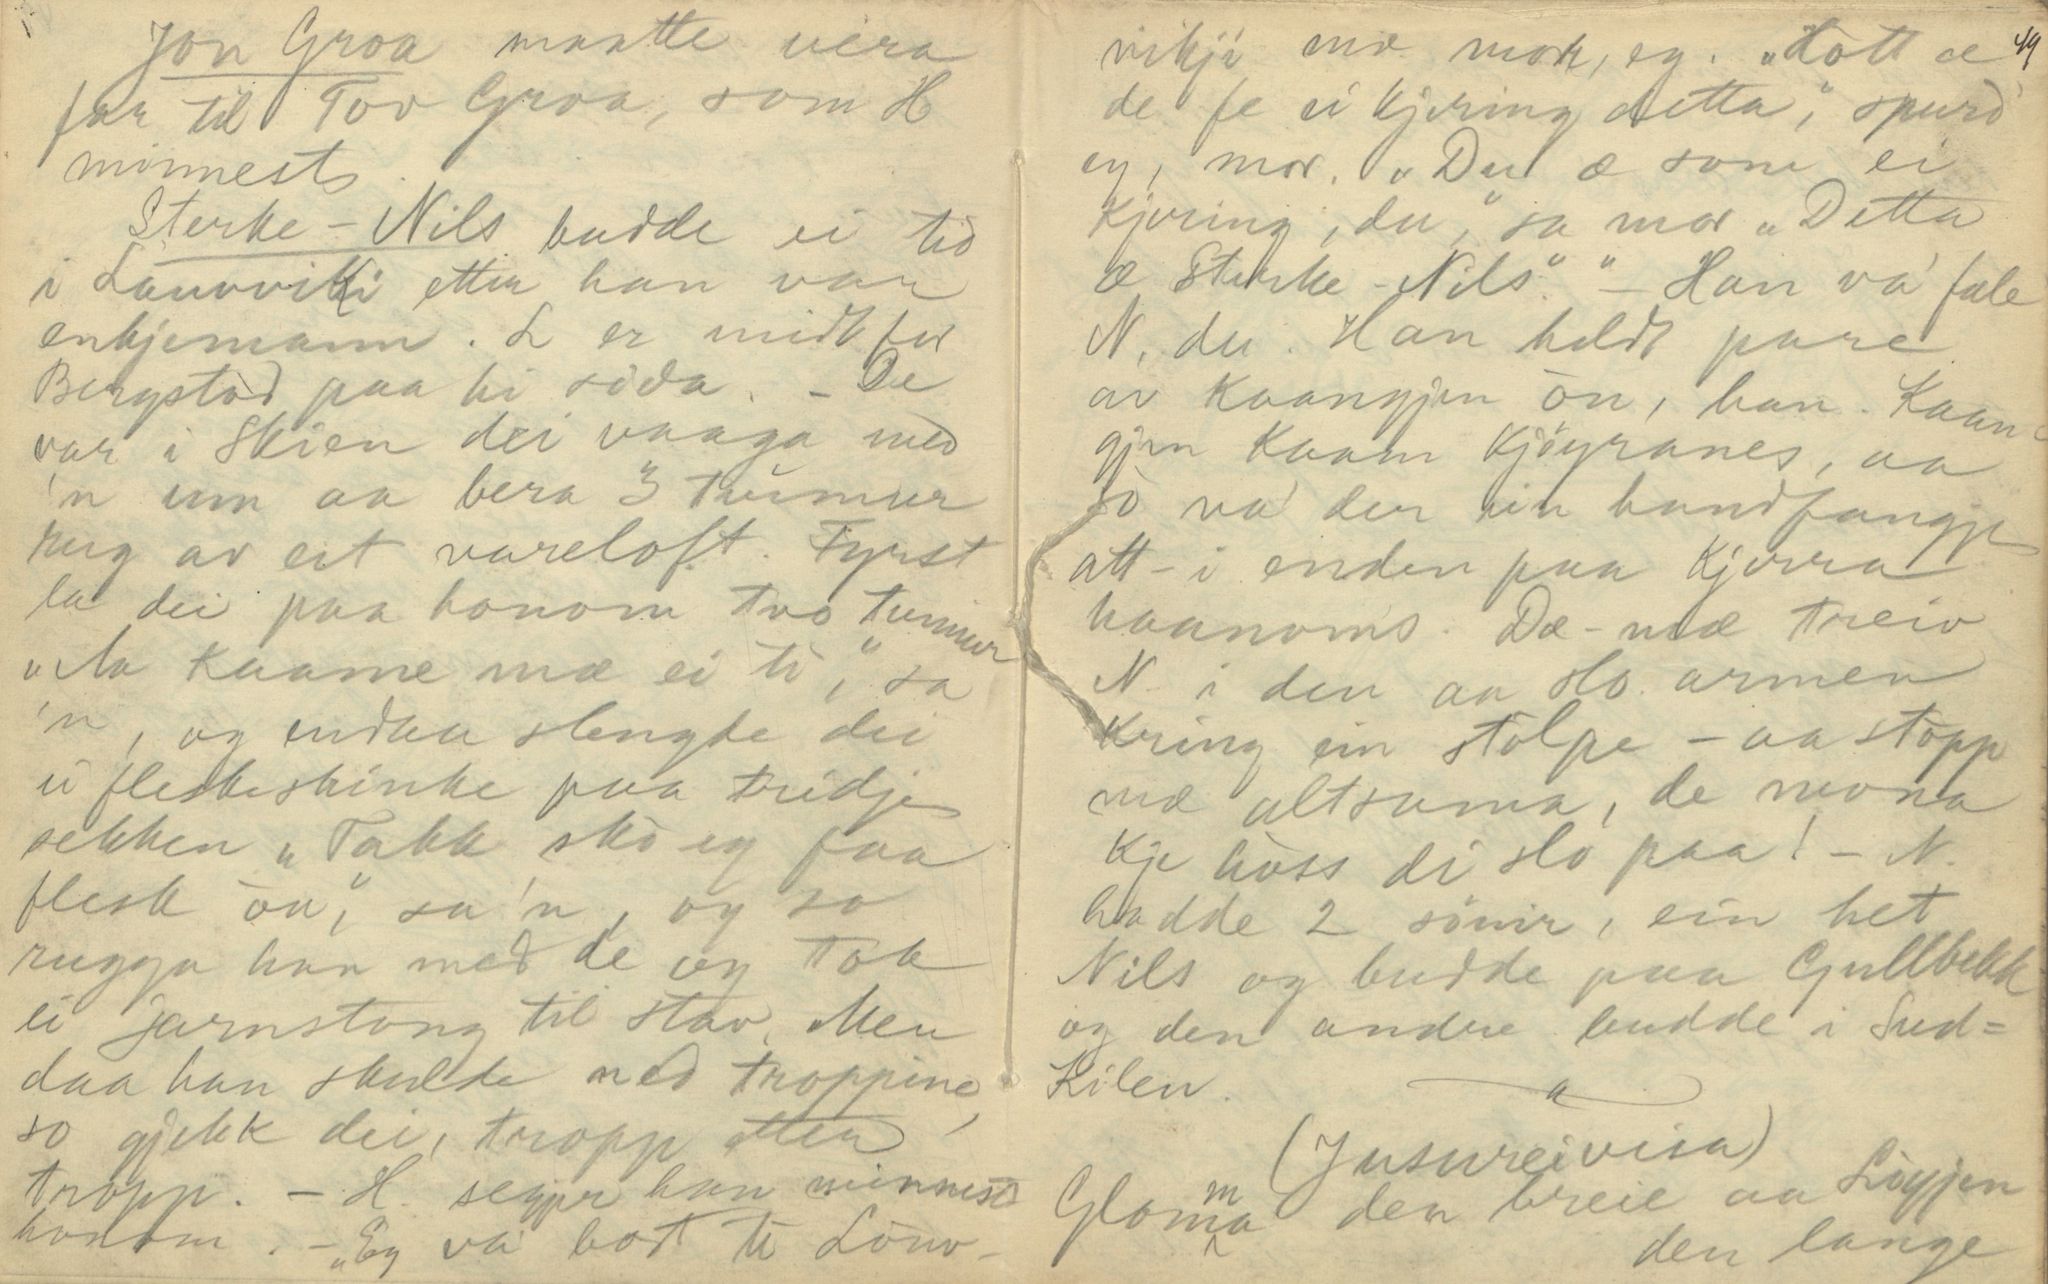 Jon Groa maatte vera
far til Tov Groa, som H
minnests.
Sterke-Nils budde ei tid
i Lauvviki etter han var
enkjemann. L er midt for
Bergstad paa hi sida. - De
var i Skien dei vaaga med
'n um aa bera 3 tunnur
rug av eit vareloft. Fyrst
la dei paa honom tvo tunnur
"Aa kaame mæ ei ti," sa
'n, og endaa slengde dei
ei fleskeskinke paa tridje
sekken "Takk sko eg faa
flesk òu", sa 'n, og so
rugga han med de og tok
ei jarnstong til stav. Men
daa han skulde ned troppine,
so gjekk dei, tropp etter
tropp. - H. segjer han minnest
honom. - "Eg va bort te Lòuv-
49
vikji mæ mor, eg. "Hott æ
de fe ei kjering detta," spurd'
eg, mor. "Du æ som ei
kjering, du," sa mor "Detta
æ Sterke-Nils"." - Han va' fale
N. du. Han heldt pare
av kaangjen òn, han. Kaan-
gjen kaam kjöyranes, aa
so va' der ein handfangje
att-i enden paa kjerra
haanoms. Dæ-mæ treiv
N. i den aa slo armen
kring ein stolpe - aa stopp
mæ altsama, de nvona
kje hòss di slo paa! - N.
hadde 2 sönir, ein het
Nils og budde paa Gullbekk
og den andre budde i Sud-
Kilen.
(Jusureivisa)
Glomma den breie aa Liqjen
den lange